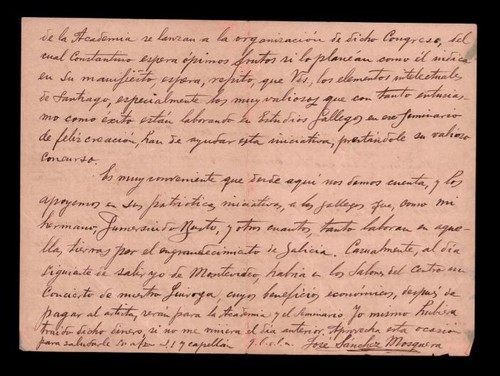 de la Academia se lanzan a la organización de dicho Congreso, del
cual Constantino espera ópimos frutos si lo planean como él indica
en su manifiesto, espera, repito, que Vds, los elementos intelectuales
de Santiago, especialmente los muy valiosos que con tanto entusias-
mo como éxito están laborando en Estudios Gallegos en ese Seminario
de feliz creación, han de ayudar esta iniciativa, prestándole su valioso
concurso.
Es muy conveniente que desde aquí nos demos cuenta, y los
apoyemos en sus patrióticas iniciativas, a los gallegos que, como mi
hermano, Gumersindo Busto, y otros cuantos, tanto laboran en aque-
llas tierras por el engrandecimiento de Galicia. Casualmente, al día
siguiente de salir yo de Montevideo, había en los Salones del Centro un
Concierto de nuestro Quiroga, cuyos beneficios económicos, después de
pagar al artista, serán para la Academia y el Seminario. Yo mismo hubiera
traído dicho dinero, si no me viniera el día anterior. Aprovecha esta ocasión
para saludarle su afmo. s.s. y capellán q.b.s.m. José Sánchez Mosquera